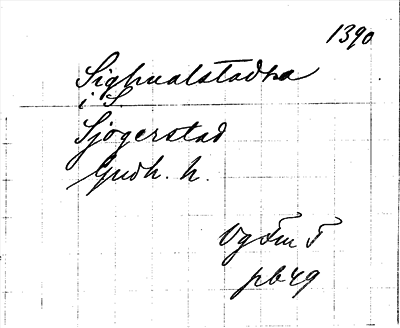 1390
Sighualstadha
i S.
Sjögerstad
Gudh. h.
Vg Fm F
pb 49